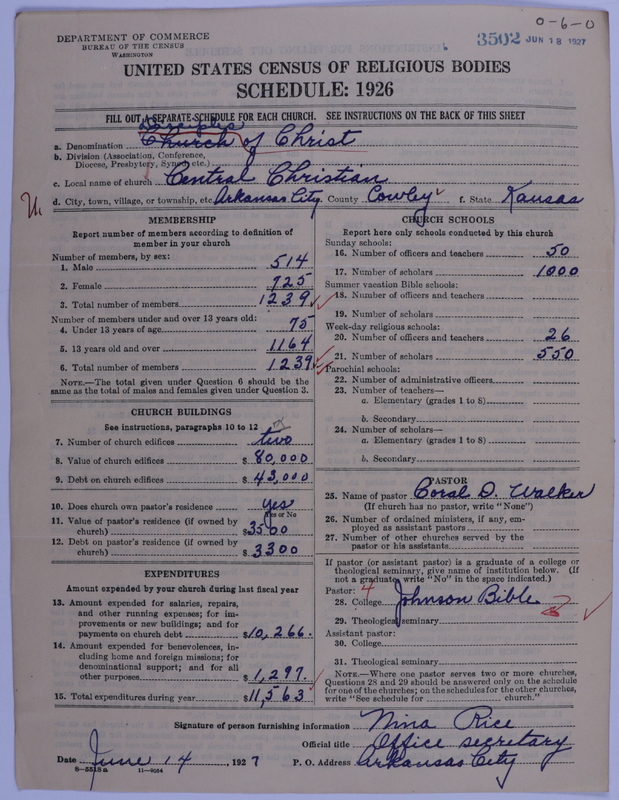 0-6-0
DEPARTMENT OF COMMERCE
BUREAU OF THE CENSUS
WASHINGTON
3502 JUN 18 1927
UNITED STATES CENSUS OF RELIGIOUS BODIES
SCHEDULE: 1926
FILL OUT A SEPARATE SCHEDULE FOR EACH CHURCH. SEE INSTRUCTIONS ON THE BACK OF THIS SHEET
Disciples
a. Denomination Church of Christ
b. Division (Association, Conference,
Diocese, Presbytery, Synod, etc.)
c. Local name of church Central Christian
d. City, town, village, or township, etc. Arkansas City County Cowley f. State Kansas
MEMBERSHIP
Report number of members according to definition of
member in your church
Number of members, by sex:
1. Male 514
2. Female 725
3. Total number of members 1239
Number of members under and over 13 years old:
4. Under 13 years of age 75
5. 13 years old and over 1164
6. Total number of members 1239
NOTE.—The total given under Question 6 should be the
same as the total of males and females given under Question 3.
CHURCH BUILDINGS
See instructions, paragraphs 10 to 12
7. Number of church edifices two
8. Value of church edifices $ 80,000
9. Debt on church edifices $ 43,000
10. Does church own pastor's residence yes
Yes or No
11. Value of pastor's residence (if owned by
church) $ 3500
12. Debt on pastor's residence (if owned by
church) $ 3300
EXPENDITURES
Amount expended by your church during last fiscal year
13. Amount expended for salaries, repairs,
and other running expenses; for im-
provements or new buildings; and for
payments on church debt $ 10,266.
14. Amount expended for benevolences, in-
cluding home and foreign missions; for
denominational support; and for all
other purposes $ 1,297.
15. Total expenditures during year $ 11,563
CHURCH SCHOOLS
Report here only schools conducted by this church
Sunday schools:
16. Number of officers and teachers 50
17. Number of scholars 1000
Summer vacation Bible schools:
18. Number of officers and teachers
19. Number of scholars
Week-day religious schools:
20. Number of officers and teachers 26
21. Number of scholars 550
Parochial schools:
22. Number of administrative officers
23. Number of teachers—
a. Elementary (grades 1 to 8)
b. Secondary
24. Number of scholars—
a. Elementary (grades 1 to 8)
b. Secondary
PASTOR
25. Name of pastor Coral D. Walker
(If church has no pastor, write "None")
26. Number of ordained ministers, if any, em-
ployed as assistant pastors
27. Number of other churches served by the
pastor or his assistants
If pastor (or assistant pastor) is a graduate of a college or
theological seminary, give name of institution below. (If
not a graduate, write "No" in the space indicated.)
Pastor: 4
28. College Johnson Bible
29. Theological seminary
Assistant pastor:
30. College
31. Theological seminary
NOTE.—Where one pastor serves two or more churches,
Questions 28 and 29 should be answered only on the schedule
for one of the churches; on the schedules for the other churches,
write "See schedule for church."
Signature of person furnishing information Nina Rice
Official title Office secretary
Date June 14, 1927 P. O. Address Arkansas City
8-5518a 11-9034